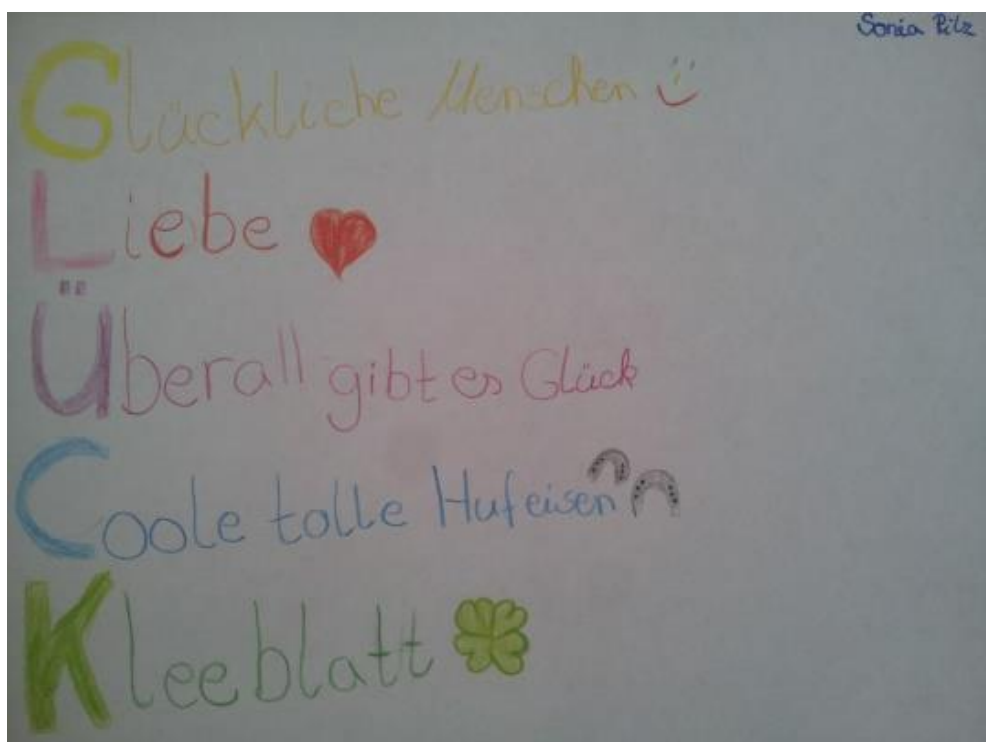 Sonia Pilz
Glückliche Menschen
Liebe
Überall gibt es Glück
Coole tolle Hufeisen
Kleeblatt